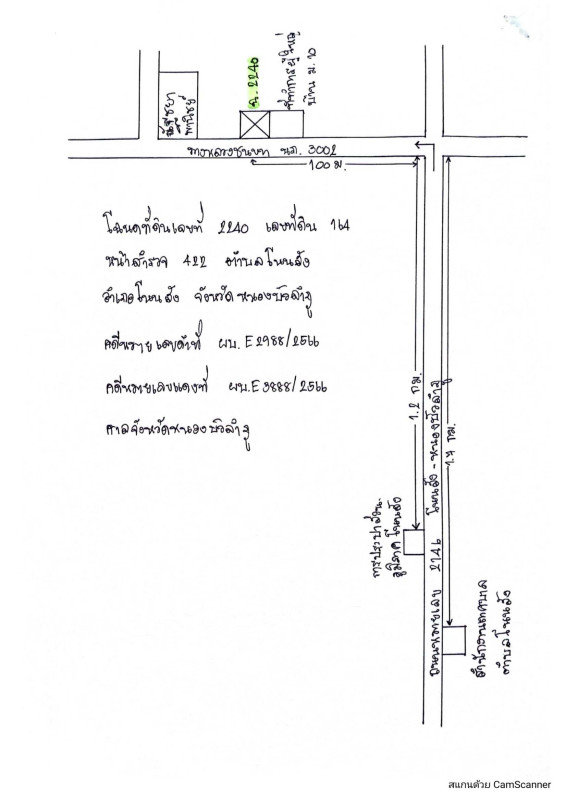 ฉ. 2240
ที่ทำการผู้ใหญ่
บ้าน ม. 10
พาณิชย์
ทางหลวงชนบท นภ. 3002
100 ม.
โฉนดที่ดินเลขที่ 2240 เลขที่ดิน 164
หน้าสำรวจ 422 ตำบลโนนสัง
อำเภอโนนสัง จังหวัดหนองบัวลำภู
คดีหมายเลขดำที่ ผบ.E2988/2566
คดีหมายเลขแดงที่ ผบ.E3888/2566
ศาลจังหวัดหนองบัวลำภู
1.2 กม.
1.7 กม.
ถนนหมายเลข 2146 โนนสัง - หนองบัวลำภู
การประปาส่วน
ภูมิภาคโนนสัง
สำนักงานเทศบาล
ตำบลโนนสัง
สแกนด้วย CamScanner